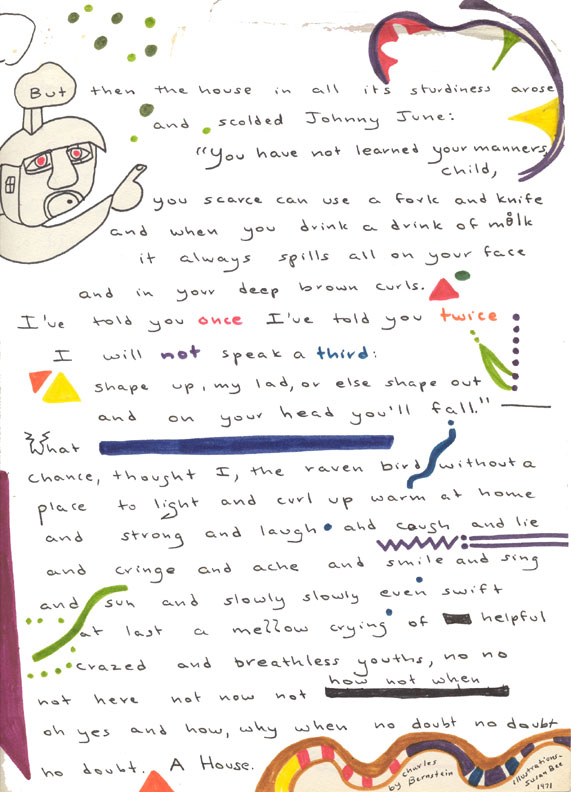 But then the house in all its sturdiness arose
and scolded Johnny June:
"You have not learned your manners,
child,
you scarce can use a fork and knife
and when you drink a drink of milk
it always spills all on your face
and in your deep brown curls.
I've told you once I've told you twice
I will not speak a third:
shape up, my lad, or else shape out
and on your head you'll fall."
What
chance, thought I, the raven bird without a
place to light and curl up warm at home
and strong and laugh and cough and lie
and cringe and ache and smile and sing
and sun and slowly slowly even swift
at last a mellow crying of helpful
crazed and breathless youths, no no
not here not now not how not when
oh yes and how, why when no doubt no doubt
no doubt. A House.
Charles
by Bernstein
illustrations-
Susan Bee
1971